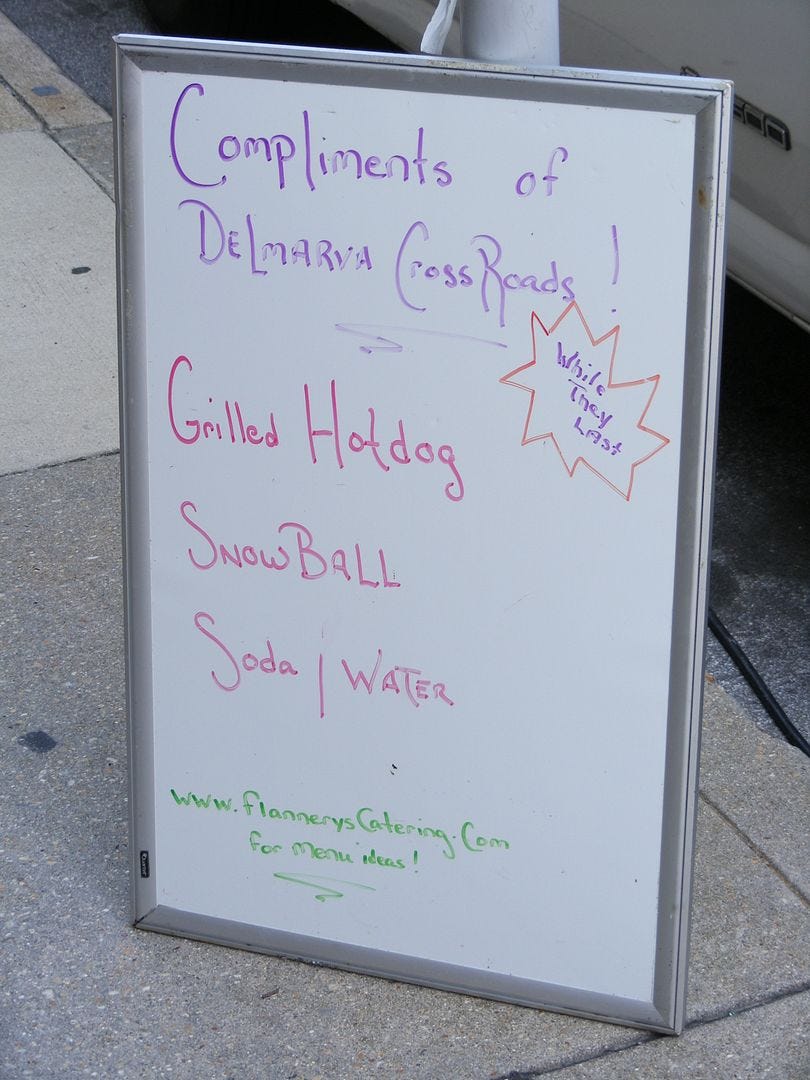 Compliments of
DELMARVA CrossRoads!
While
They
LAst
Grilled Hotdog
SNOWBALL
Soda / WATER
www.flannerysCatering.Com
for Menu ideas!